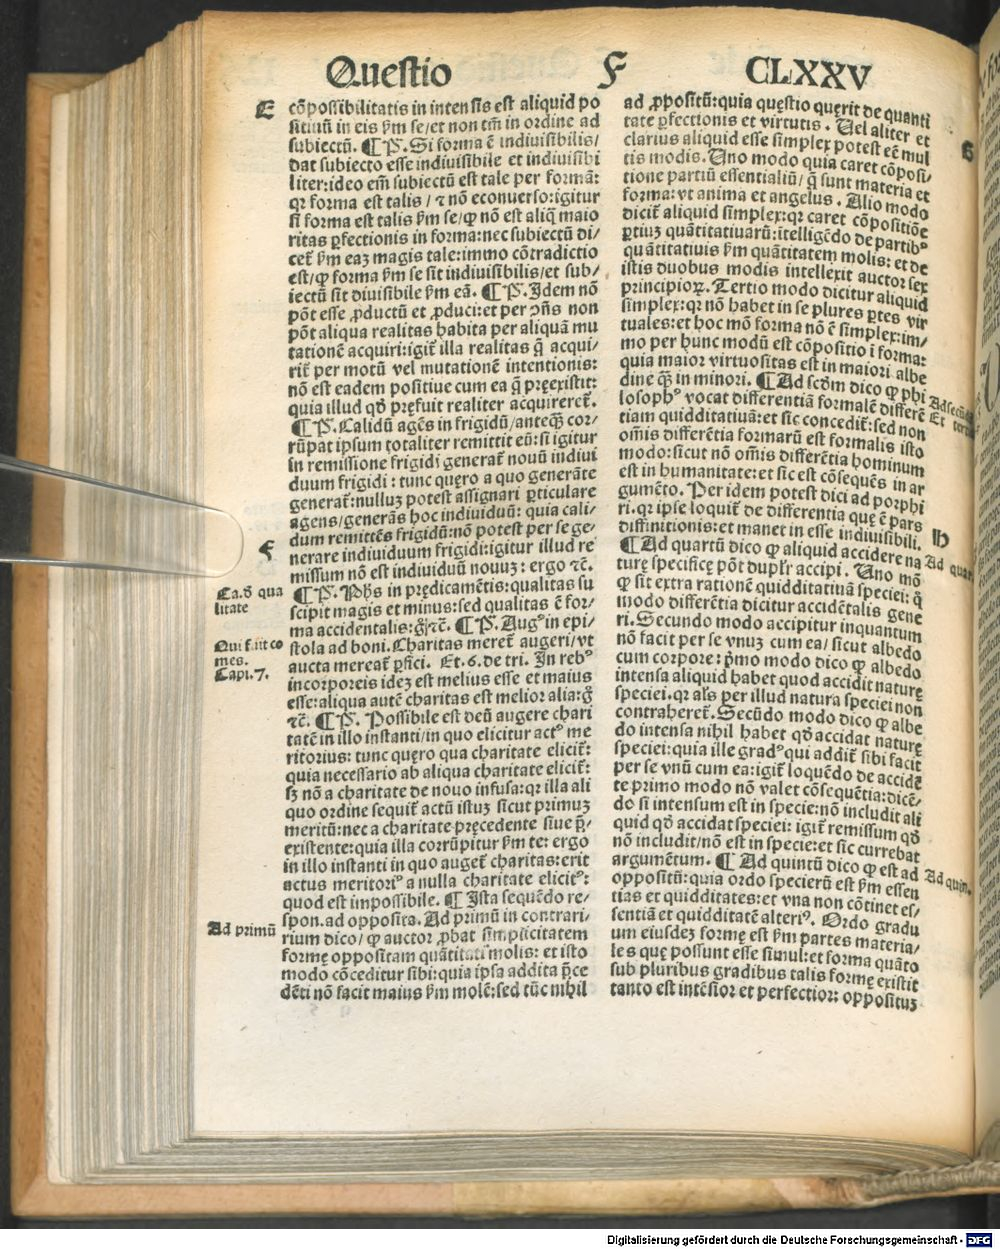 Questio F CLXXV
E
cõpossibilitatis in intensis est aliquid po
sitiuũ in eis ẞm se/et non tm̃ in ordine ad
subiectũ. ¶ P̃. Si forma ẽ indiuisibilis/
dat subiecto esse indiuisibile et indiuisibi
liter:ideo em̃ subiectũ est tale per formã:
qꝛ forma est talis/ ⁊ nõ econuerso:igitur
si forma est talis ẞm se/ꝙ nõ est aliq̃ maio
ritas ꝑfectionis in forma:nec subiectũ di/
cet̃ ẞm eaꝫ magis tale:immo cõtradictio
est/ꝙ forma ẞm se sit indiuisibilis/et sub/
iectũ sit diuisibile ẞm eã. ¶ P̃. Idem nõ
põt esse ꝓductũ et ꝓduci:et per ꝯñs non
põt aliqua realitas habita per aliquã mu
tationẽ acquiri:igit̃ illa realitas q̃ acqui/
rit̃ per motũ vel mutationẽ intentionis:
nõ est eadem positiue cum ea q̃ pręexistit:
quia illud qđ pręfuit realiter acquireret̃.
¶ P̃. Calidũ agẽs in frigidũ/anteq̃ꝫ cor/
rũpat ipsum totaliter remittit eũ:si igitur
in remissione frigidi generat̃ nouũ indiui
duum frigidi : tunc quęro a quo generãte
generat̃:nulluꝫ potest assignari ꝑticulare
agens/generãs hoc indiuiduũ: quia cali/
F
dum remittẽs frigidũ:nõ potest per se ge/
nerare indiuiduum frigidi:igitur illud re
missum nõ est indiuiduũ nouuꝫ : ergo ⁊c̃.
Ca.ð qua
litate
¶ P̃. Phs in prędicamẽtis:qualitas su
scipit magis et minus:sed qualitas ẽ for/
ma accidentalis:g̃ ⁊c̃. ¶ P̃. Augꝰ in epi/
stola ad boni. Charitas meret̃ augeri/vt
Qui f.iit co
mes.
Capi.7.
aucta mereat̃ ꝑfici. Et.6.de tri. In rebꝰ
incorporeis ideꝫ est melius esse et maius
esse:aliqua autẽ charitas est melior alia:g̃
⁊c̃. ¶ P̃. Possibile est deũ augere chari
tatẽ in illo instanti/in quo elicitur actꝰ me
ritorius: tunc quęro qua charitate elicit̃:
quia necessario ab aliqua charitate elicit̃:
sꝫ nõ a charitate de nouo infusa:qꝛ illa ali
quo ordine sequit̃ actũ istuꝫ sicut primuꝫ
meritũ:nec a charitate pręcedente siue p̃/
existente:quia illa corrũpitur ẞm te: ergo
in illo instanti in quo auget̃ charitas:erit
actus meritoriꝰ a nulla charitate elicitꝰ:
quod est impossibile. ¶ Ista sequẽdo re/
Ad primũ
spon.ad opposita. Ad primũ in contrari/
rium dico/ ꝙ auctor ꝓbat simplicitatem
formę oppositam quãtitati molis: et isto
modo cõceditur sibi:quia ipsa addita p̃ce
dẽti nõ facit maius ẞm molẽ:sed tũc nihil
ad ꝓpositũ:quia quęstio quęrit de quanti
tate ꝑfectionis et virtutis. Uel aliter et
G
clarius aliquid esse simplex potest eẽ mul
tis modis. Uno modo quia caret cõposi/
tione partiũ essentialiũ/ q̃ sunt materia et
forma: vt anima et angelus. Alio modo
dicit̃ aliquid simplex:qꝛ caret cõpositiõe
ꝑtiuꝫ quãtitatiuarũ:ĩtelligẽdo de partibꝰ
quãtitatiuis ẞm quãtitatem molis: et de
istis duobus modis intellexit auctor sex
principioꝝ. Tertio modo dicitur aliquid
simplex:qꝛ nõ habet in se plures ꝑtes vir
tuales:et hoc mõ forma nõ ẽ simplex:im/
mo per hunc modũ est cõpositio ĩ forma:
quia maior virtuositas est in maiori albe
dine q̃ꝫ in minori. ¶ Ad scđm dico ꝙ phi
Ad secũ
Et terti
losophꝰ vocat differentiã formalẽ differẽ
tiam quidditatiuã:et sic concedit̃:sed non
om̃is differẽtia formarũ est formalis isto
modo:sicut nõ om̃is differẽtia hominum
est in humanitate:et sic est cõsequẽs in ar
gumẽto. Per idem potest dici ad porphi
ri.qꝛ ipse loquit̃ de differentia quę ẽ pars
diffinitionis:et manet in esse indiuisibili.
H
¶ Ad quartũ dico ꝙ aliquid accidere na
Ad quar
turę specificę põt duplr̃ accipi. Uno mõ
ꝙ sit extra rationẽ quidditatiuã speciei: q̃
modo differẽtia dicitur accidẽtalis gene
ri. Secundo modo accipitur inquantum
nõ facit per se vnuꝫ cum ea/ sicut albedo
cum corpore: p̃mo modo dico ꝙ albedo
intensa aliquid habet quod accidit naturę
speciei.qꝛ als̃ per illud natura speciei non
contraheret̃. Secũdo modo dico ꝙ albe
do intensa nihil habet qđ accidat naturę
speciei:quia ille gradꝰ qui addit̃ sibi facit
per se vnũ cum ea:igit̃ loquẽdo de accidẽ
te primo modo nõ valet cõsequẽtia:dicẽ/
do si intensum est in specie:nõ includit ali
quid qđ accidat speciei: igit̃ remissum qđ
nõ includit/nõ est in specie:et sic currebat
argumẽtum. ¶ Ad quintũ dico ꝙ est ad
Ad quin.
oppositũ:quia ordo specierũ est ẞm essen
tias et quidditates:et vna non cõtinet es/
sentiã et quidditatẽ alteriꝰ. Ordo gradu
um eiusdeꝫ formę est ẞm partes materia/
les quę possunt esse simul:et forma quãto
sub pluribus gradibus talis formę existit
tanto est intẽsior et perfectior: oppositũꝫ
Digitalisierung gefördert durch die Deutsche Forschungsgemeinschaft - DFG